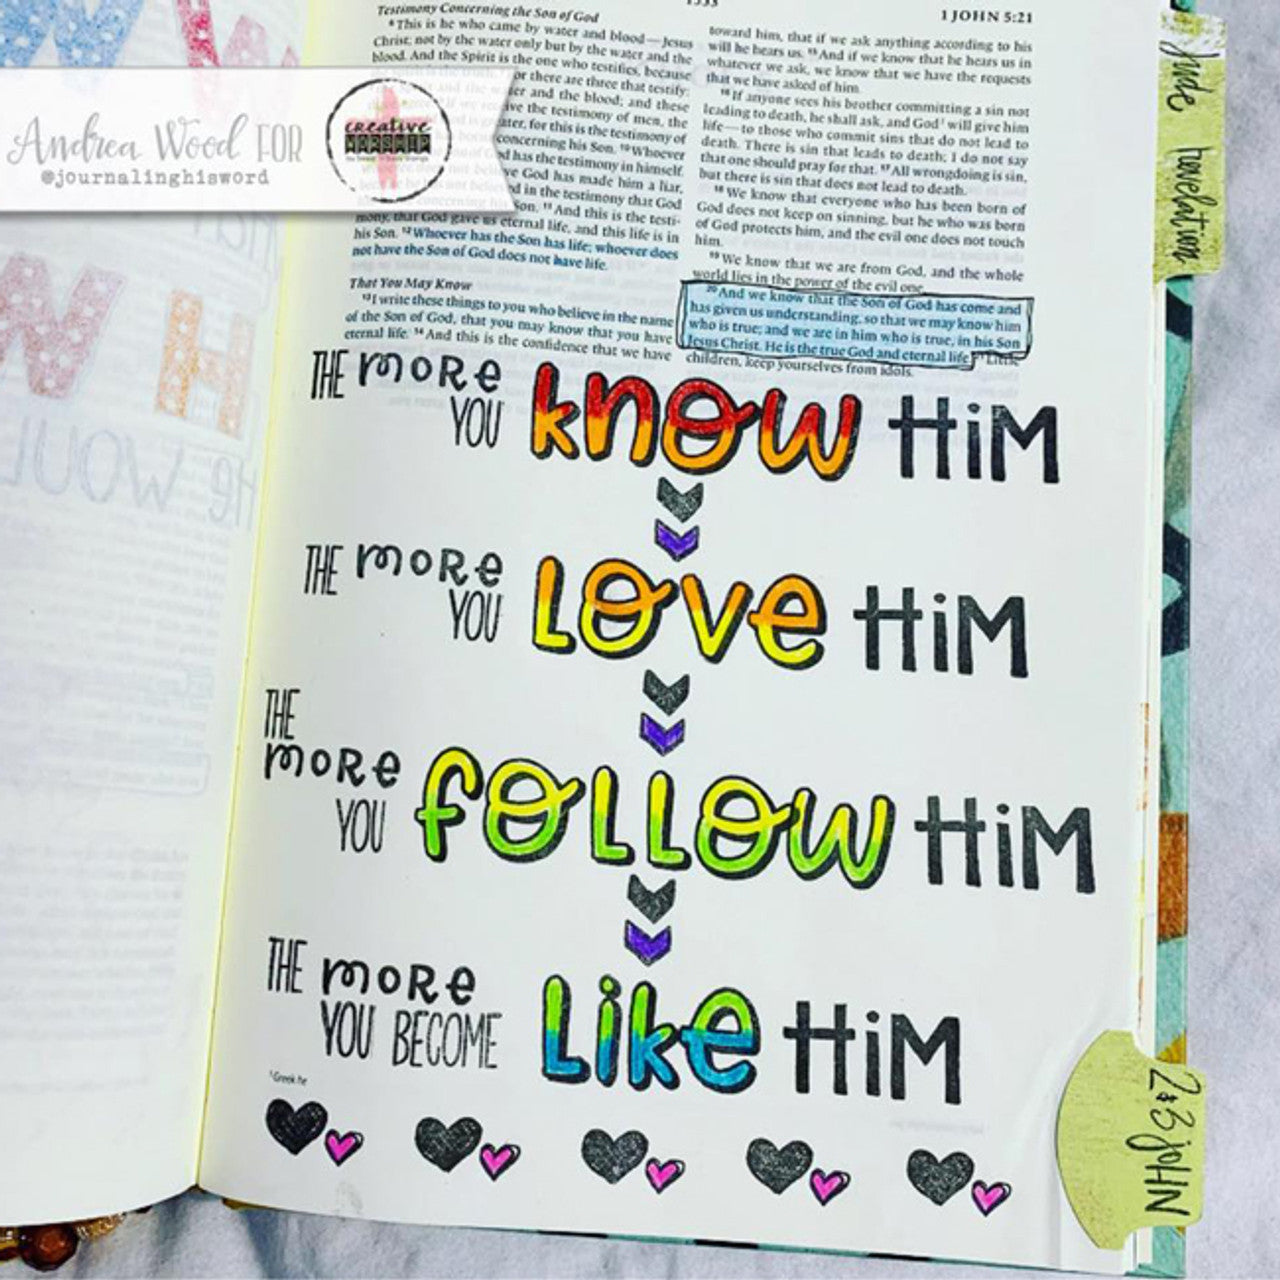 1333
1 JOHN 5:21
Testimony Concerning the Son of God
⁶This is he who came by water and blood—Jesus
Christ; not by the water only but by the water and the
blood. And the Spirit is the one who testifies, because
or there are three that testify:
er and the blood; and these
ive the testimony of men, the
ater, for this is the testimony of
concerning his Son. ¹⁰Whoever
d has the testimony in himself.
ve God has made him a liar,
d in the testimony that God
Son. ¹¹And this is the testi-
mony, that God gave us eternal life, and this life is in
his Son. ¹²Whoever has the Son has life; whoever does
not have the Son of God does not have life.
That You May Know
¹³I write these things to you who believe in the name
of the Son of God, that you may know that you have
eternal life. ¹⁴And this is the confidence that we have
toward him, that if we ask anything according to his
will he hears us. ¹⁵And if we know that he hears us in
whatever we ask, we know that we have the requests
that we have asked of him.
¹⁶If anyone sees his brother committing a sin not
leading to death, he shall ask, and God¹ will give him
life—to those who commit sins that do not lead to
death. There is sin that leads to death; I do not say
that one should pray for that. ¹⁷All wrongdoing is sin,
but there is sin that does not lead to death.
¹⁸We know that everyone who has been born of
God does not keep on sinning, but he who was born
of God protects him, and the evil one does not touch
him.
¹⁹We know that we are from God, and the whole
world lies in the power of the evil one.
²⁰And we know that the Son of God has come and
has given us understanding, so that we may know him
who is true; and we are in him who is true, in his Son
Jesus Christ. He is the true God and eternal life. ²¹Little
children, keep yourselves from idols.
Andrea Wood FOR
@journalinghisword
creative
WORSHIP
THE more
YOU know HiM
THE more
YOU Love HiM
THE
more
YOU follow HiM
THE more
YOU BECOME Like HiM
¹Greek he
Jude
revelation
2&3 JOHN